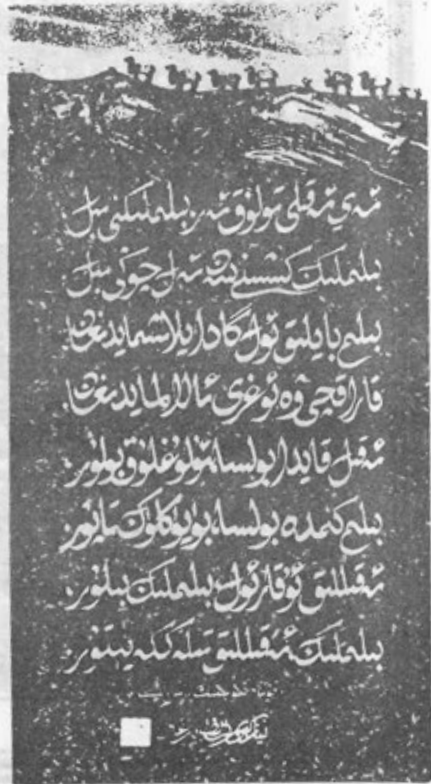 ئەي ئەقلى تولۇق ئەر، بىلىملىكنى بىل
بىلىملىك ئەل بىل
بىلىم بايلىق ئول گادايلاشمايدىغان
قاراقچى ۋە ئوغرى ئالالمايدىغان
ئەقىل قايدا بولسا ئۇلۇغلۇق بولۇر،
بىلىم كىمدە بولسا، بۈيۈكلۈك تاپۇر
ئەقىللىق ئۇقار ئول، بىلىملىك بىلۇر،
بىلىملىك، ئەقىللىق تىلەككە يېتۇر